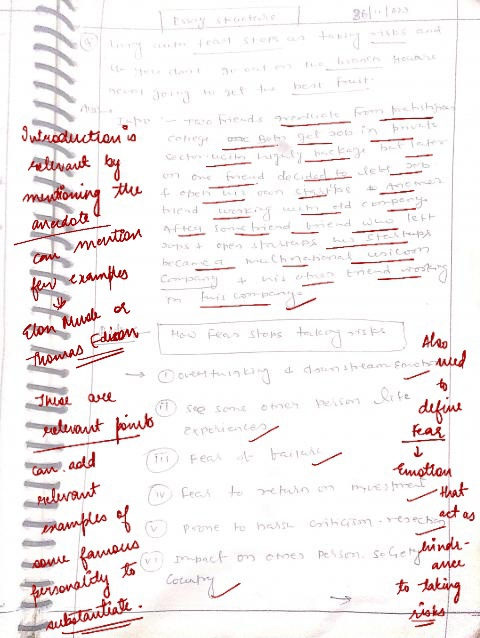 Essay structure
26/11/2023
Q Living with fear stops us taking risks and
if you don't go out on the branch you're
never going to get the best fruit.
Ans:-
Intro :- Two friends graduate from prestigious
college and both get job in private
sector with highly package but later
on one friend decided to left job
& open his own startups & another
friend working with old company.
After some friend who left
Jobs & open startups his startups
became a multinational unicorn
company & his other friend working
in this company.
Introduction is
relevant by
mentioning the
anecdote
can mention
few examples
↓
Elon Musk or
Thomas Edison
How Fear stops taking risks
(i) overthinking & downstream emotion
(ii) see some other person life
experiences
(iii) Fear of failure
(iv) Fear to return on investment
(v) Prone to harsh criticism - rejection
(vi) Impact on other person. society
These are
relevant points
can add
relevant
examples of
some famous
personality to
substantiate.
Also
need
to
define
Fear
↓
Emotion
that
act as
hindr-
ance
to taking
risks